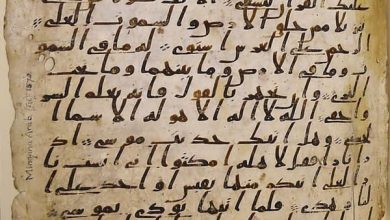 عليك القرن لتشقى
يلا ممن خلق الارض والسموت العلى
الرحمن على العرش استوى له ما فى السمو
ت وما فى الارض وما بينهما وما تحت
الثرى وان تجهر بالقول فانه يعلم السر
واخفى الله لا اله الا هو له الاسما ا
لحسنى وهل اتيك حديث موسى اذ
را نارا فقل لاهله امكثوا انى انست نا
را لعلى اتيكم منها بقبس او اجد على ا
لنار هدى فلما اتيها نودى يموسى
Mingana Arab. Isl. 1572